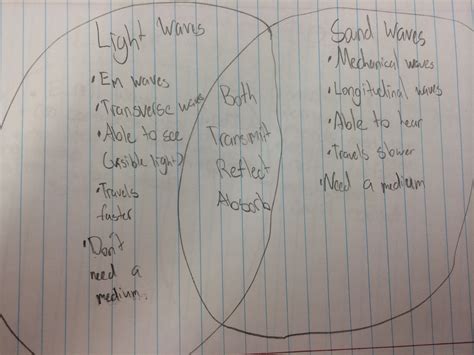 Light Waves
• Em waves
• Transverse waves
• Able to see
(visible light)
• Travels
faster
• Don't
need a
medium.
Both
Transmit
Reflect
Absorb
Sand Waves
• Mechanical waves
• Longitudinal waves
• Able to hear
• Travels slower
• Need a medium